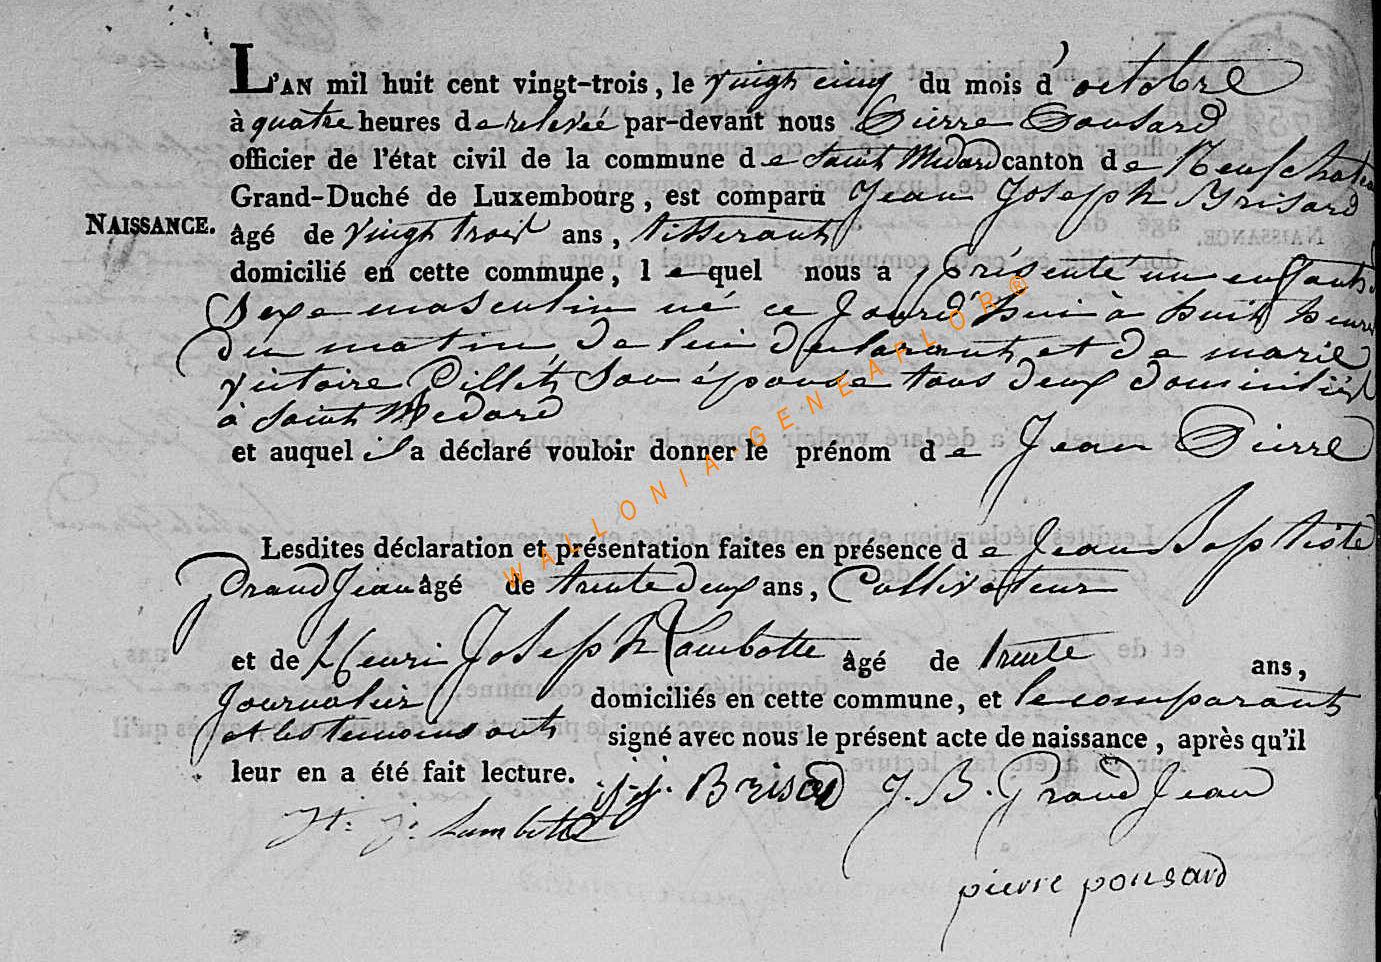 L'AN mil huit cent vingt-trois, le vingt cinq du mois d'octobre
à quatre heures de relevée par-devant nous Pierre Pousard
officier de l'état civil de la commune de Saint Medard canton de Neufchateau
Grand-Duché de Luxembourg, est comparu Jean Joseph Brisard
NAISSANCE. âgé de vingt trois ans, tisserant
domicilié en cette commune, lequel nous a présenté un enfant
Sexe masculin né ce jourd'hui à huit heures
du matin de lui declarant et de marie
victoire Pillet Son épouse tous deux domiciliés
à Saint Medard
et auquel il a déclaré vouloir donner le prénom de Jean Pierre
Lesdites déclaration et présentation faites en présence de Jean Baptiste
GrandJean âgé de trente deux ans, Cultivateur
et de Henri Joseph Lambotte âgé de trente ans,
Journalier domiciliés en cette commune, et le comparant
et les temoins ont signé avec nous le présent acte de naissance, après qu'il
leur en a été fait lecture. j.j. Brisard J. B. GrandJean
H. J. Lambotte
pierre pousard
WALLONIA-GENEAFLOR®